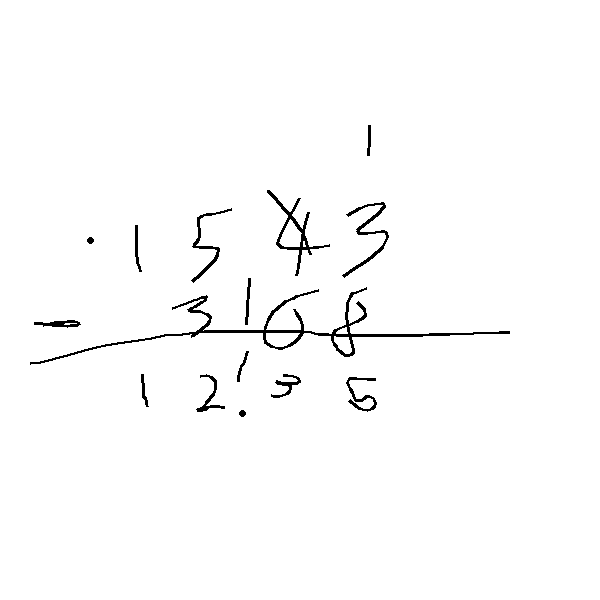 1
1 5 4 3
- 3 1 6 8
1 2 1 3 5